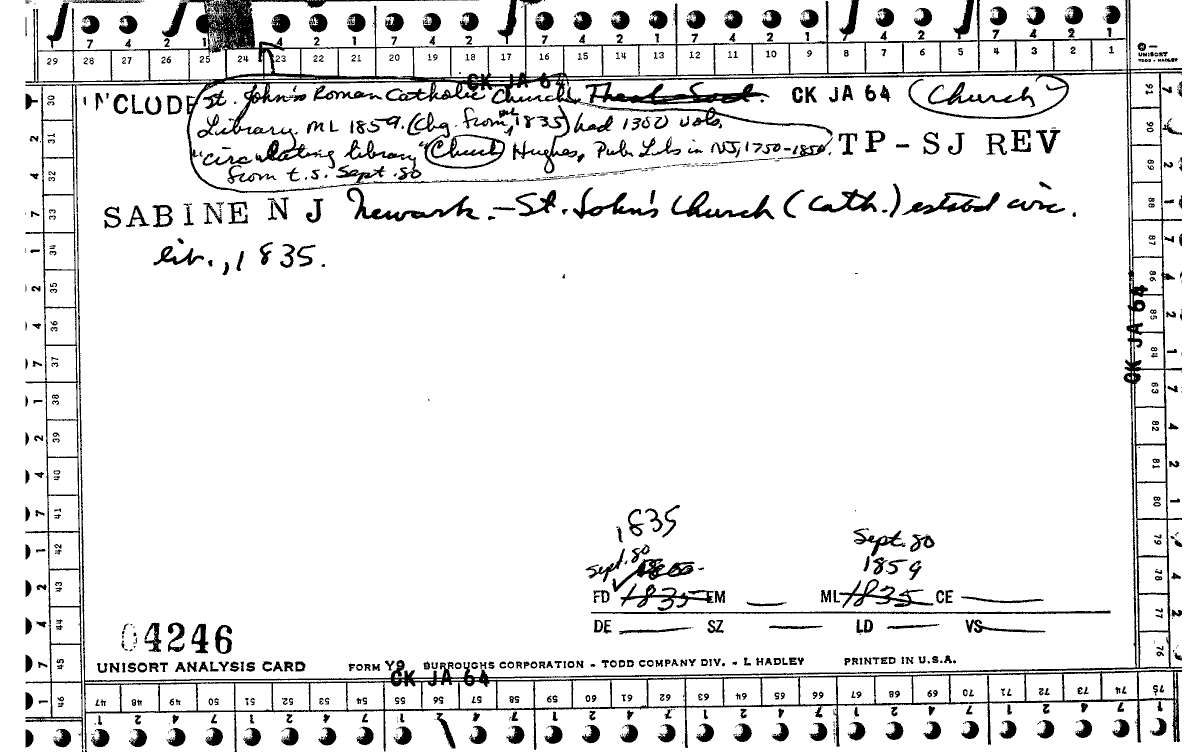 7 4 2 1 4 2 1 7 4 2 1 7 4 2 1 7 4 2 1 7 4 2 1
29 28 27 26 25 24 23 22 21 20 19 18 17 16 15 14 13 12 11 10 9 8 7 6 5 4 3 2 1
UNISORT
TODD - HADLEY
CK JA 64
'NCLUDE St. John's Roman Catholic Church, CK JA 64 (Church)
Library. ML 1859. (Chg. from ML 1835) had 1300 vols.
"circulating library" (Church) Hughes, Pub Libs in NJ, 1750-1850. TP - SJ REV
from t.s. Sept. 80
SABINE N J Newark. - St. John's Church (Cath.) estabd circ.
lib., 1835.
CK JA 64
1835
Sept. 80 Sept. 80
1859
FD 1835 EM ML 1835 CE
DE SZ LD VS
04246
UNISORT ANALYSIS CARD FORM Y9 BURROUGHS CORPORATION - TODD COMPANY DIV. - L HADLEY PRINTED IN U.S.A.
CK JA 64
30 31 32 33 34 35 36 37 38 39 40 41 42 43 44 45 46
47 48 49 50 51 52 53 54 55 56 57 58 59 60 61 62 63 64 65 66 67 68 69 70 71 72 73 74 75
76 77 78 79 80 81 82 83 84 85 86 87 88 89 90 91